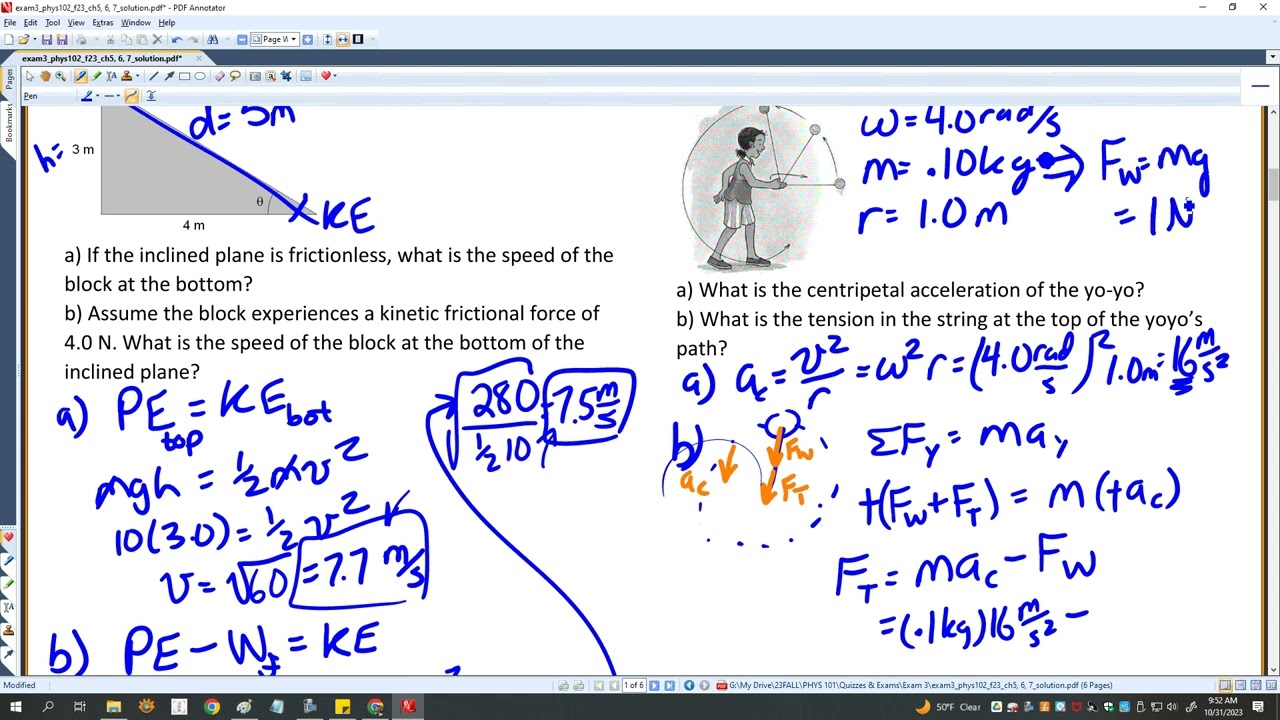 exam3_phys102_f23_ch5, 6, 7_solution.pdf* - PDF Annotator
File Edit Tool View Extras Window Help
Page W
exam3_phys102_f23_ch5, 6, 7_solution.pdf*
Pen
Pages
Bookmarks
d= 5m
h=
3 m
θ
KE
4 m
a) If the inclined plane is frictionless, what is the speed of the
block at the bottom?
b) Assume the block experiences a kinetic frictional force of
4.0 N. What is the speed of the block at the bottom of the
inclined plane?
a) PE top = KE bot
mgh = 1/2 mv²
10(3.0) = 1/2 v²
v = √60 = 7.7 m/s
b) PE - W_f = KE
√(280 / 1/2 10) = 7.5 m/s
ω = 4.0 rad/s
m = .10kg ⇒ F_W = mg
r = 1.0 m = 1 N
a) What is the centripetal acceleration of the yo-yo?
b) What is the tension in the string at the top of the yoyo’s
path?
a) a_c = v²/r = ω² r = (4.0 rad/s)² 1.0m = 16 m/s²
b)
a_c
F_W
F_T
ΣF_y = ma_y
+(F_W + F_T) = m(+a_c)
F_T = ma_c - F_W
= (.1kg)16 m/s² -
Modified
1 of 6
G:\My Drive\23FALL\PHYS 101\Quizzes & Exams\Exam 3\exam3_phys102_f23_ch5, 6, 7_solution.pdf (6 Pages)
50°F Clear
9:52 AM
10/31/2023